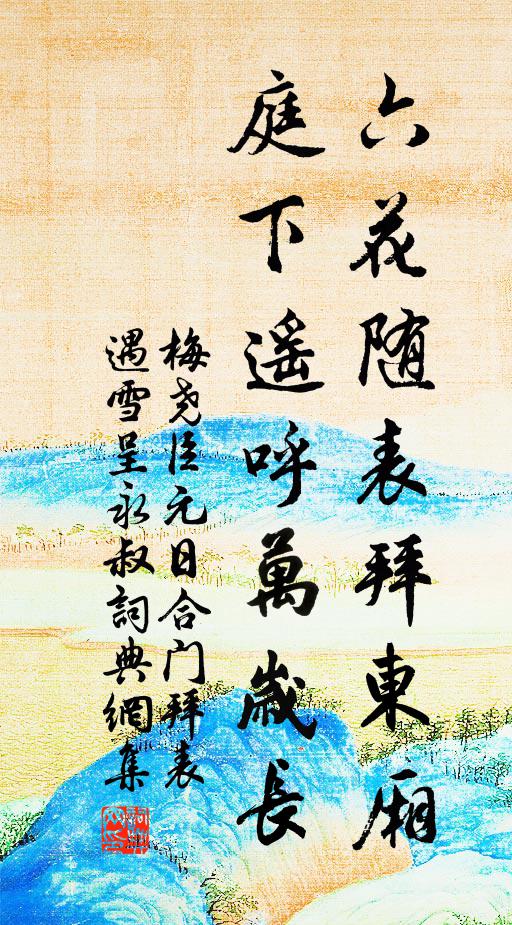 六花随表拜東廂
庭下遥呼萬歲長
梅尧臣元日合门拜表
遇雪呈永叔詞典網集